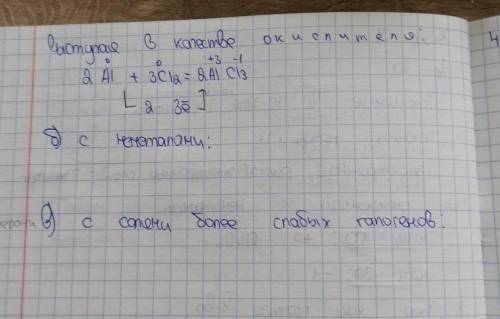 выступая в качестве окислителя:
0 0 +3 -1
2Al + 3Cl2 = 2AlCl3
2·3ē
б) с неметалами:
в) с солями более слабых галогенов: